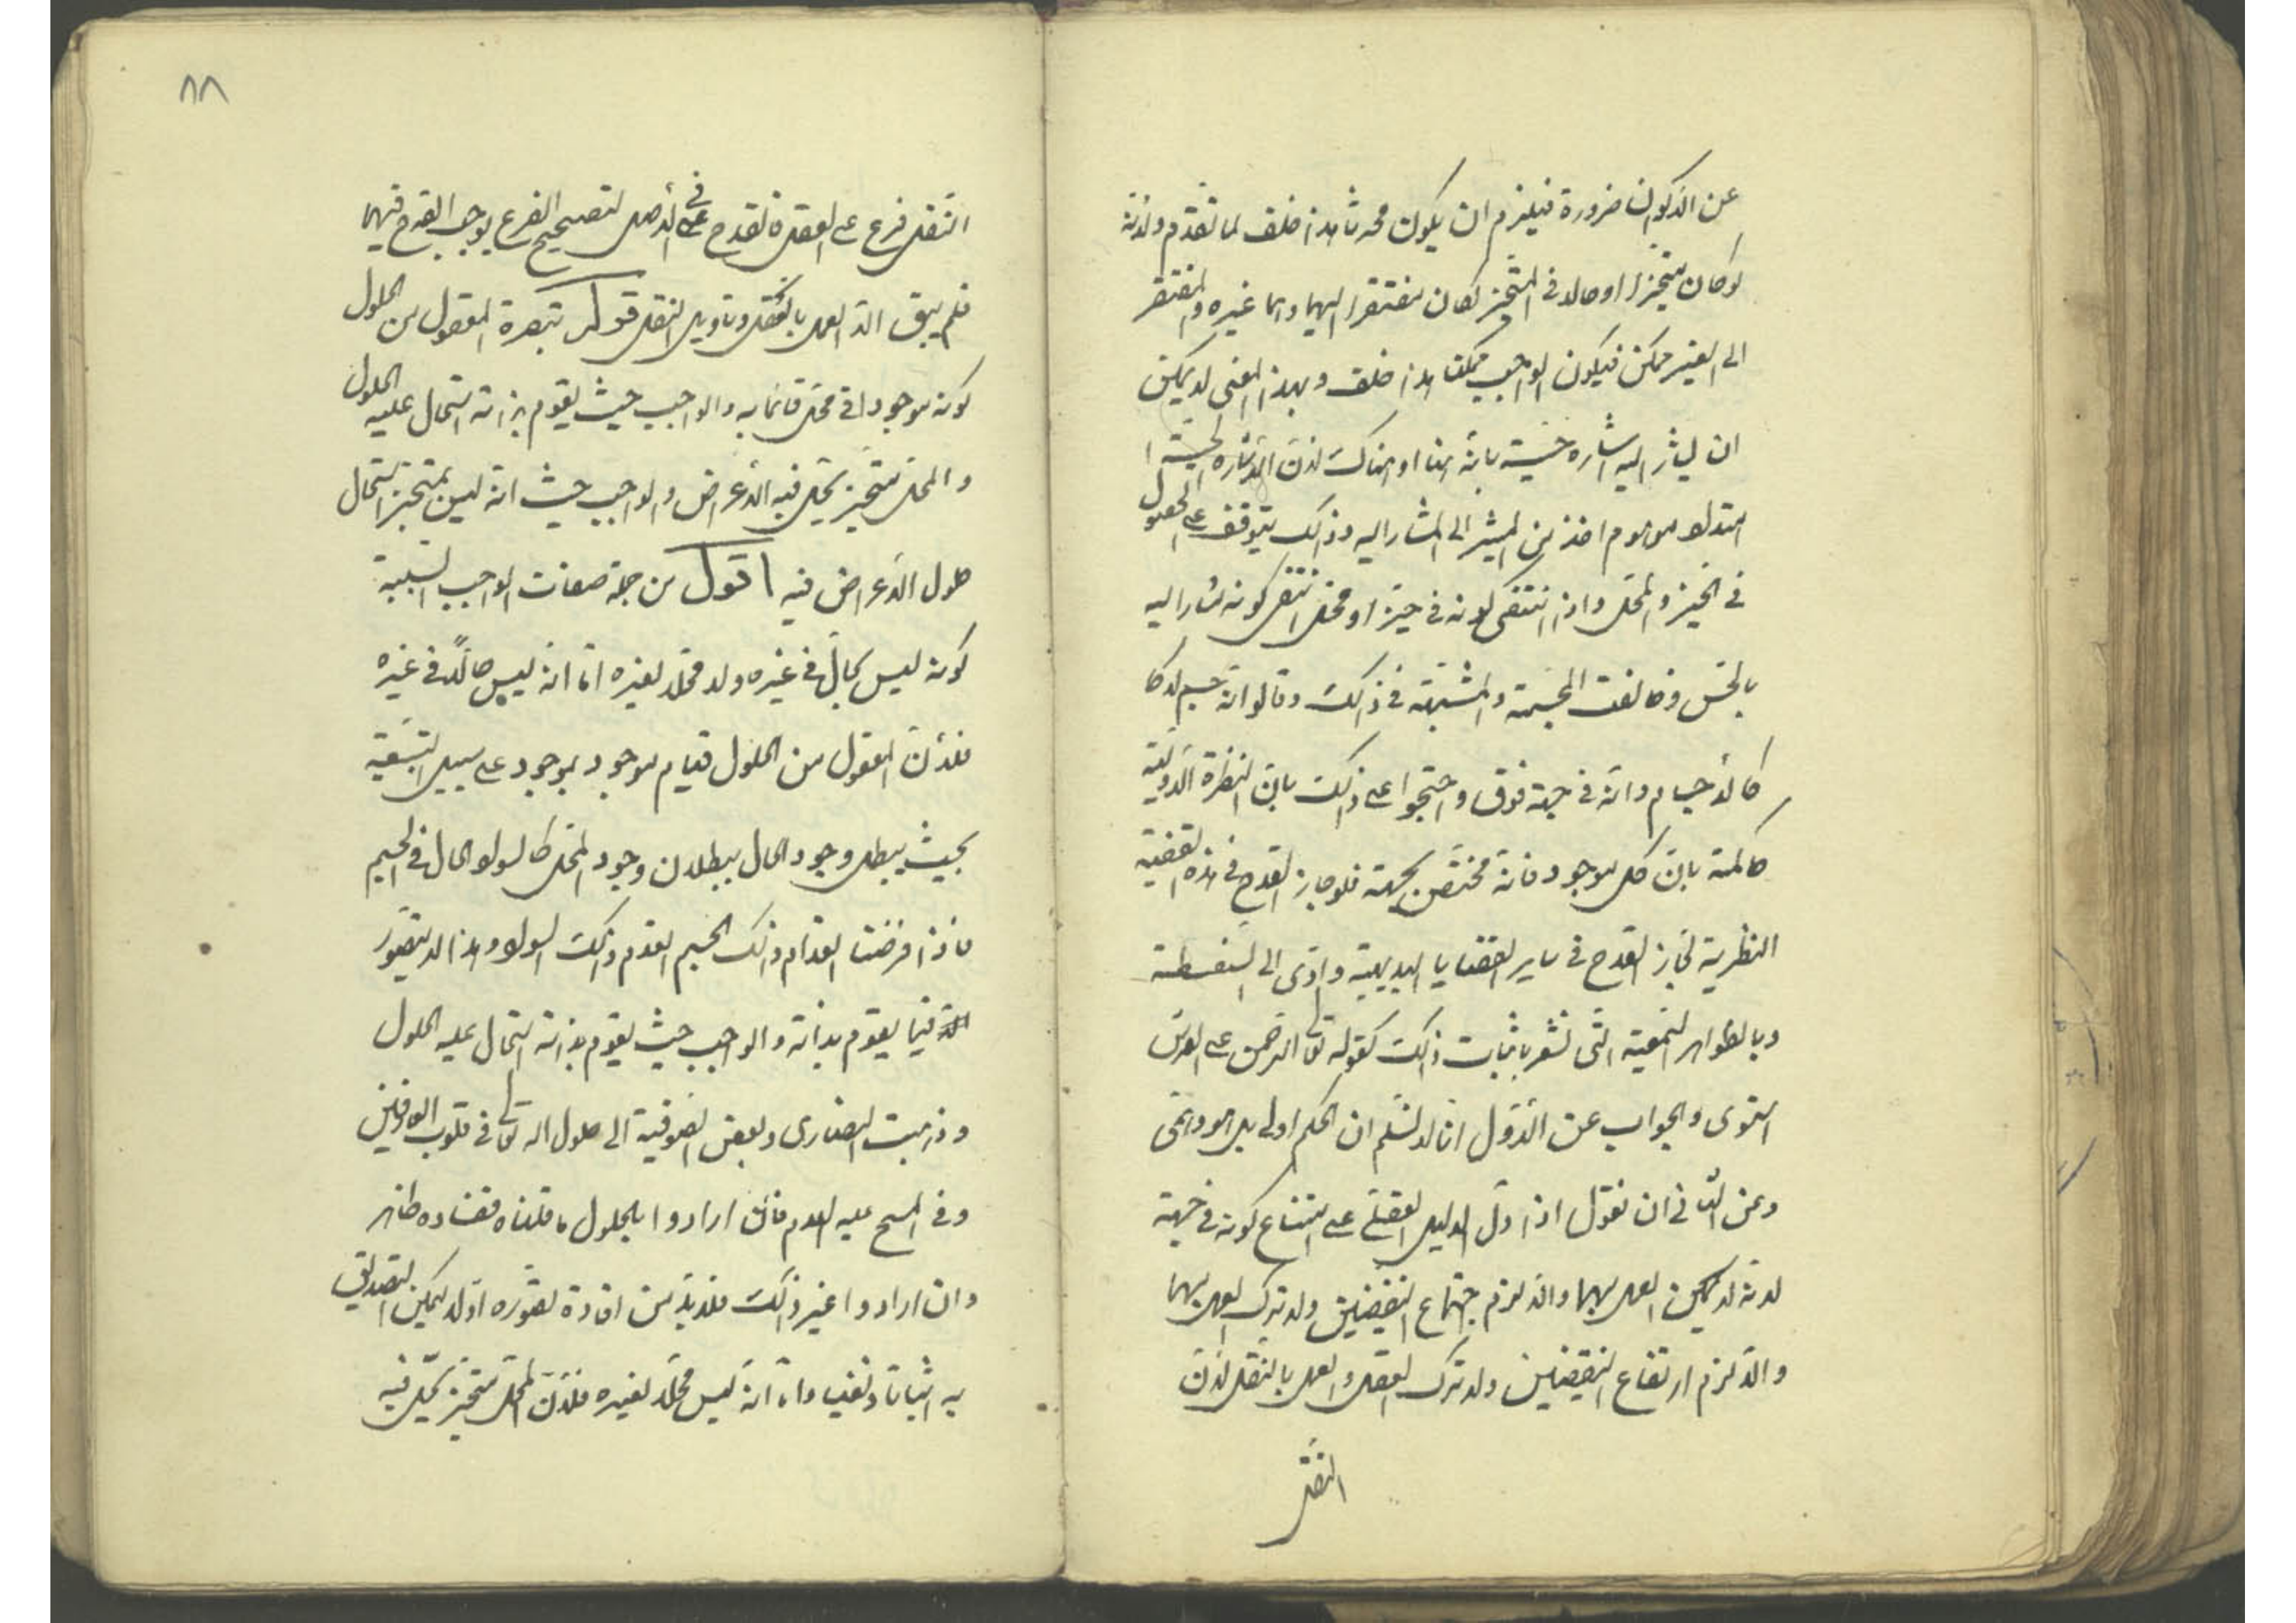 عن الأكوان ضرورة فيلزم ان يكون محدثا هذا خلف لما تقدم ولأنه
لو كان متحيزا او حالا في المتحيز لكان مفتقرا اليهما وهما غيره والمفتقر
الى الغير ممكن فيكون الواجب ممكنا هذا خلف وبهذا المعنى لا يمكن
ان يشار اليه اشارة حسية بانه هنا او هناك لأن الاشارة الحسية
امتداد موهوم اخذ من المشير الى المشار اليه وذلك يتوقف على الحصول
في الحيز والمحل واذا انتفى كونه في حيز او محل انتفى كونه مشارا اليه
بالحس وخالفت المجسمة والمشبهة في ذلك وقالوا انه جسم لا كا
كالأجسام وانه في جهة فوق واحتجوا على ذلك بان الفطرة الأولية
حاكمة بان كل موجود فانه مختص بجهة فلو جاز القدح في هذه القضية
النظرية لجاز القدح في ساير القضايا البديهية وادى الى السفسطة
وبالظواهر السمعية التي تشعر باثبات ذلك كقوله تعالى الرحمن على العرش
استوى والجواب عن الأول انا لا نسلم ان الحكم اولى بل هو وهمي
وعن الثاني ان نقول اذا دل الدليل العقلي على امتناع كونه في جهة
لانه لا يمكن العمل بهما والا لزم اجتماع النقيضين ولا ترك العمل بهما
والا لزم ارتفاع النقيضين ولا ترك العقل والعمل بالنقل لأن
النقل
٨٨
النقل فرع على العقل فالقدح في الأصل لتصحيح الفرع يوجب القدح فيهما
فلم يبق الا العمل بالعقل وتأويل النقل قوله تبصرة المعقول من الحلول
كونه موجودا في محل قائما به والواجب حيث يقوم بذاته استحال عليه الحلول
والمحل متحيز يحل فيه الأعراض والواجب حيث انه ليس بمتحيز استحال
حلول الأعراض فيه اقول من جملة صفات الواجب السلبية
كونه ليس بحال في غيره ولا محلا لغيره اما انه ليس حالا في غيره
فلأن المعقول من الحلول قيام موجود بموجود على سبيل التبعية
بحيث يبطل وجود الحال ببطلان وجود المحل كالسواد الحال في الجسم
فاذا فرضنا انعدام ذلك الجسم انعدم ذلك السواد وهذا لا يتصور
الا فيما يقوم بذاته والواجب حيث يقوم بذاته استحال عليه الحلول
وذهبت النصارى وبعض الصوفية الى حلول الله تعالى في قلوب العارفين
وفي المسيح عليه السلام فان ارادوا بالحلول ما قلناه ففساده ظاهر
وان ارادوا غير ذلك فلا بد من افادة تصوره اذ لا يمكن التصديق
به اثباتا ونفيا واما انه ليس محلا لغيره فلأن المحل متحيز يحل فيه